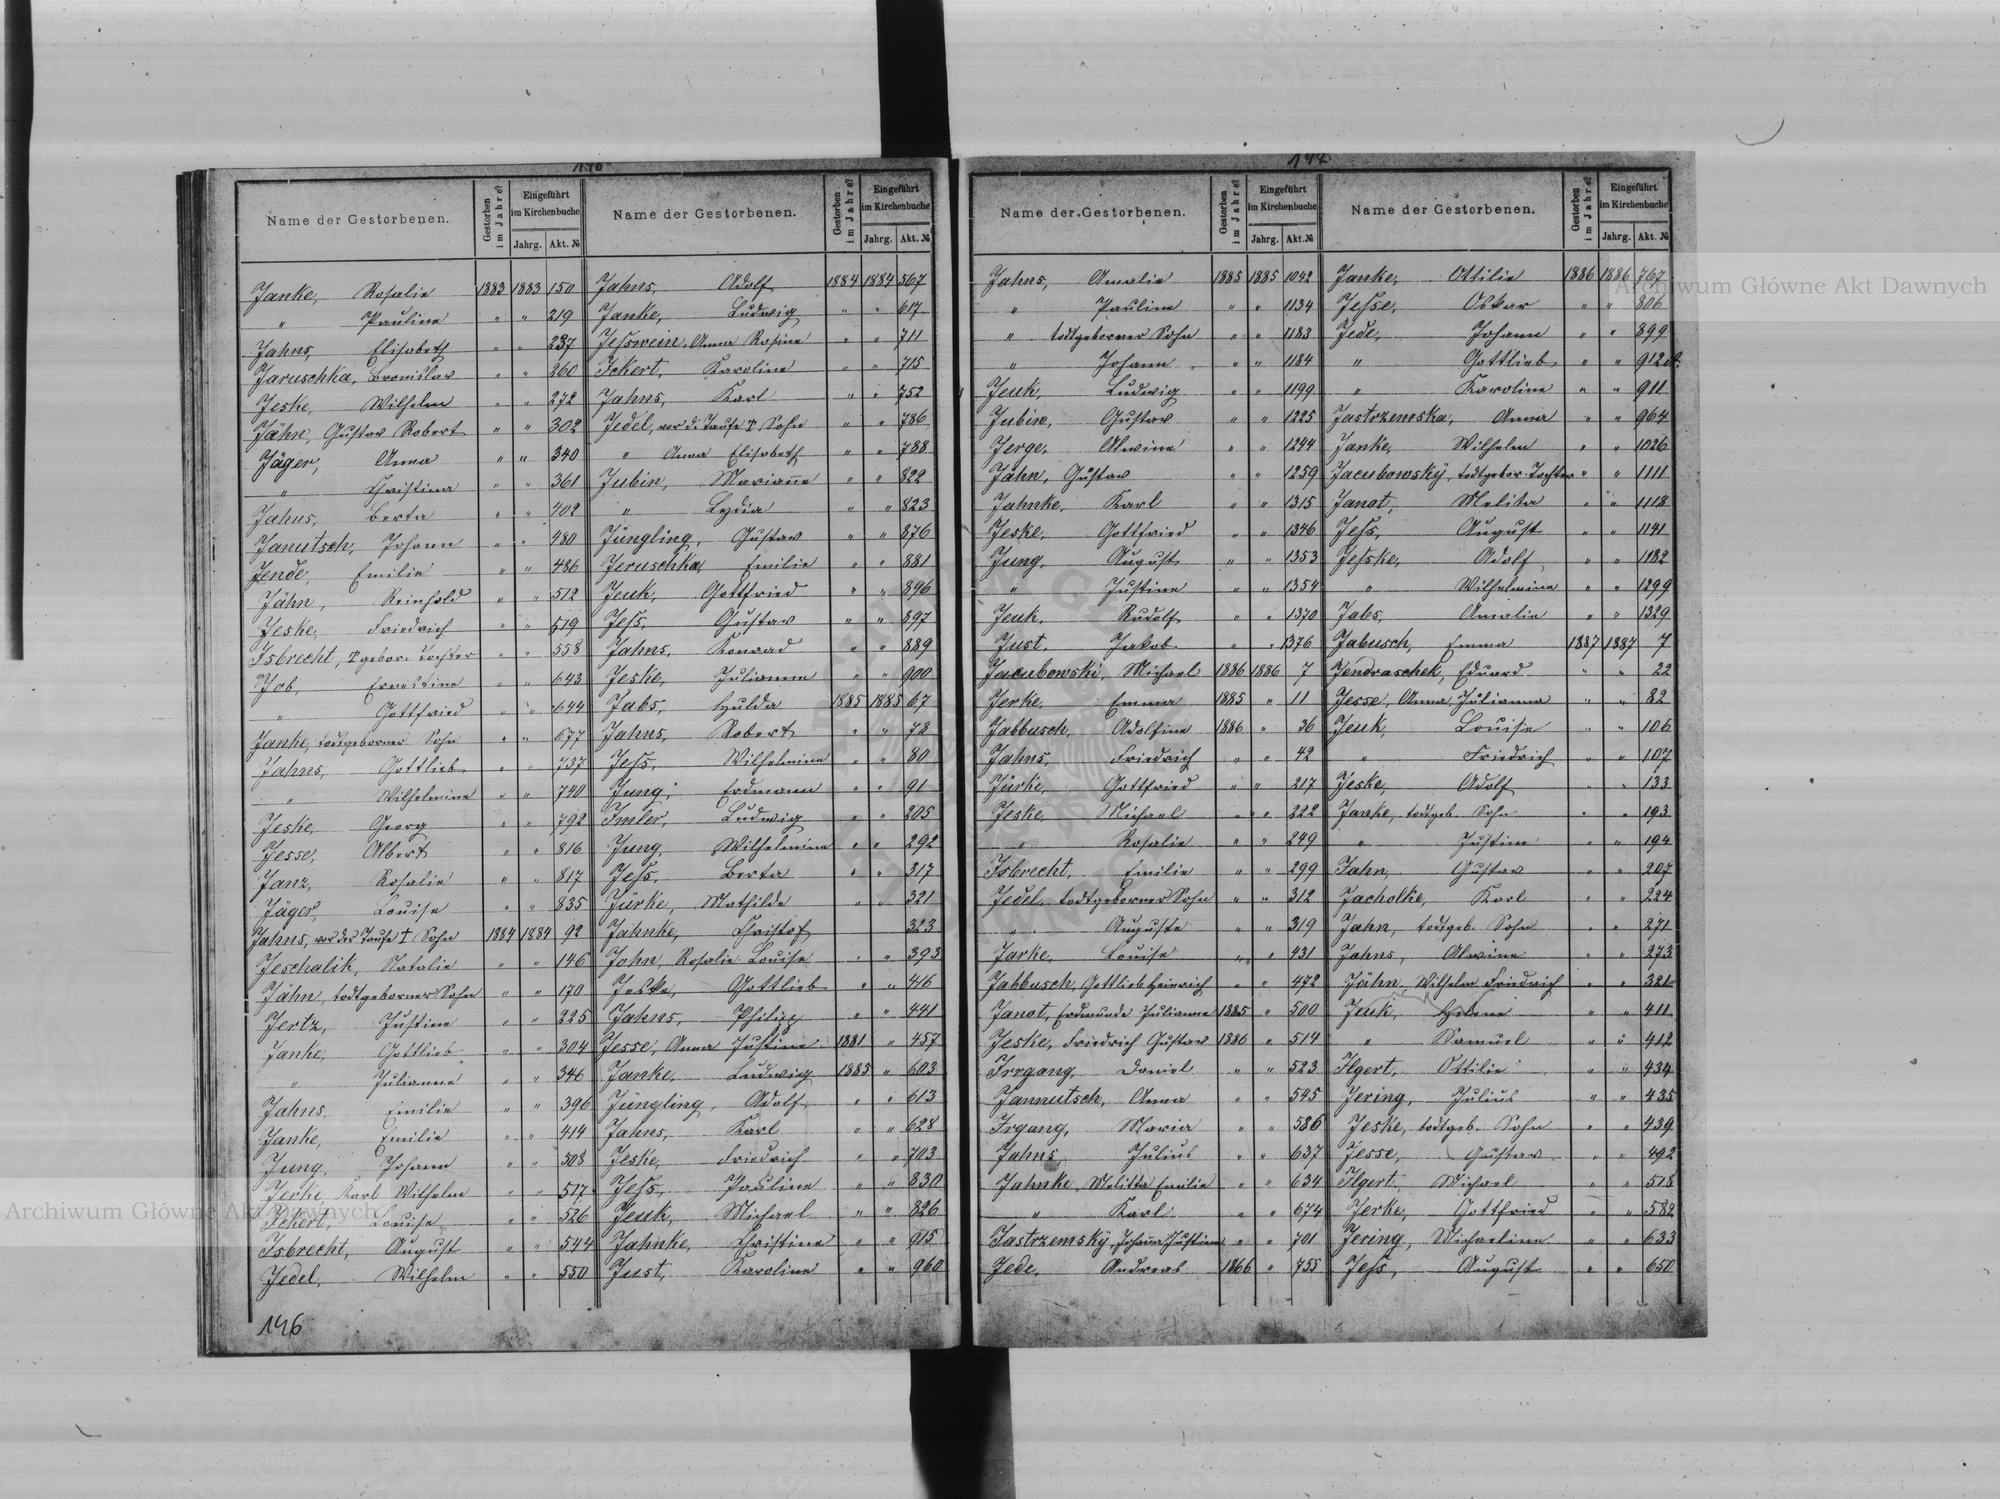 146
147
Name der Gestorbenen. Gestorben im Jahre? Eingeführt im Kirchenbuche Jahrg. Akt. №
Janke, Rosalie 1883 1883 150
" Pauline " " 219
Jahns, Elisabeth " " 237
Jaruschka, Bronislav " " 260
Jeske, Wilhelm " " 272
Jähn, Gustav Robert " " 302
Jäger, Anna " " 340
" Christina " " 361
Jahns, Berta " " 402
Janutsch, Johann " " 480
Jende, Emilie " " 486
Jähn, Reinhold " " 512
Jeske, Friedrich " " 519
Isbrecht, † gebor. Tochter " " 558
Job, Ernestine " " 643
" Gottfried " " 644
Janke, todtgeborner Sohn " " 677
Jahns, Gottlieb " " 737
" Wilhelmine " " 740
Jeske, Georg " " 792
Jesse, Albert " " 816
Janz, Rosalie " " 817
Jäger, Louise " " 835
Jahns, vor der Taufe † Sohn 1884 1884 92
Jeschalik, Natalie " " 146
Jähn, todtgeborner Sohn " " 170
Jertz, Justine " " 225
Janke, Gottlieb " " 304
" Julianne " " 346
Jahns, Emilie " " 396
Janke, Emilie " " 414
Jung, Johann " " 508
Jerke, Karl Wilhelm " " 517
Ickert, Louise " " 526
Isbrecht, August " " 544
Jedel, Wilhelm " " 550
146
Name der Gestorbenen. Gestorben im Jahre? Eingeführt im Kirchenbuche Jahrg. Akt. №
Jahns, Adolf 1884 1884 567
Janke, Ludwig " " 617
Jesswein, Anna Rosine " " 711
Ickert, Karoline " " 715
Jahns, Karl " " 752
Jedel, vor di Taufe † Sohn " " 786
" Anna Elisabeth " " 788
Jubin, Marianne " " 822
" Lydia " " 823
Jüngling, Gustav " " 876
Jeruschka, Emilie " " 881
Jeuk, Gottfried " " 896
Jeſs, Gustav " " 897
Jahns, Konrad " " 889
Jeske, Julianne " " 900
Jabs, Hulda 1885 1885 67
Jahns, Robert " " 78
Jeſs, Wilhelmine " " 80
Jung, Erdmann " " 91
Imler, Ludwig " " 205
Jung, Wilhelmine " " 292
Jeſs, Berta " " 317
Jürke, Mathilde " " 321
Jahnke, Christof 323
John, Rosalie Louise " " 393
Jeske, Gottlieb " " 416
Jahns, Philipp " " 441
Jesse, Anna Justine 1881 " 457
Janke, Ludwig 1885 " 603
Jüngling, Adolf " " 613
Jahns, Karl " " 628
Jeske, Friedrich " " 703
Jeſs, Pauline " " 830
Jeuk, Michael " " 826
Jahnke, Christine " " 915
Just, Karoline " " 960
Name der Gestorbenen. Gestorben im Jahre? Eingeführt im Kirchenbuche Jahrg. Akt. №
Jahns, Amalie 1885 1885 1042
" Pauline " " 1134
" todtgeborner Sohn " " 1183
" Johann " " 1184
Jeuk, Ludwig " " 1199
Jubin, Gustav " " 1225
Jerge, Alwine " " 1244
Jähn, Gustav " " 1259
Jahnke, Karl " " 1315
Jeske, Gottfried " " 1346
Jung, August " " 1353
" Justine " " 1354
Jeuk, Rudolf " " 1370
Just, Jakob " " 1376
Jacubowski, Michael 1886 1886 7
Jerke, Emma 1885 " 11
Jabbusch, Adolfine 1886 " 36
Jahns, Friedrich " " 42
Jürke, Gottfried " " 217
Jeske, Michael " " 222
" Rosalie " " 249
Isbrecht, Emilie " " 299
Jedel, todtgeborner Sohn " " 312
" Auguste " " 319
Jarke, Louise " " 431
Jabbusch, Gottlieb Heinrich " " 472
Janot, Erdmunde Julianne 1885 " 500
Jeske, Friedrich Gustav 1886 " 514
Irrgang, Daniel " " 523
Jannutsch, Anna " " 545
Irgang, Maria " " 586
Jahns, Julius " " 637
Jahnke, Melitta Emilie " " 634
" Karl " " 674
Jastrzemsky, Johanna Justine " " 701
Jede, Andreas 1866 " 755
Name der Gestorbenen. Gestorben im Jahre? Eingeführt im Kirchenbuche Jahrg. Akt. №
Janke, Ottilie 1886 1886 767
Jeſse, Oskar " " 806
Jede, Johann " " 899
" Gottlieb " " 912
" Karoline " " 911
Jastrzemska, Anna " " 964
Janke, Wilhelm " " 1026
Jacubowskÿ, todtgebor. Tochter " " 1111
Janot, Melita " " 1118
Jeſs, August " " 1141
Jeſske, Adolf " " 1182
" Wilhelmine " " 1299
Jabs, Amalie " " 1329
Jabusch, Emma 1887 1887 7
Jendraschek, Eduard " " 22
Jesse, Anna Julianna " " 82
Jeuk, Louise " " 106
" Friedrich " " 107
Jeske, Adolf " " 133
Janke, todtgeb. Sohn " " 193
" Justine " " 194
Jahn, Gustav " " 207
Jacholke, Karl " " 224
Jahn, todtgeb. Sohn " " 271
Jahns, Alwine " " 273
Jähn, Wilhelm Friedrich " " 321
Jeuk, Helene " " 411
" Samuel " " 412
Ilgert, Ottilie " " 434
Jering, Julius " " 435
Jeske, todtgeb. Sohn " " 439
Jesse, Gustav " " 492
Ilgert, Michael " " 518
Jerke, Gottfried " " 582
Jering, Michaeline " " 633
Jeſs, August " " 650
Archiwum Główne Akt Dawnych
Archiwum Główne Akt Dawnych